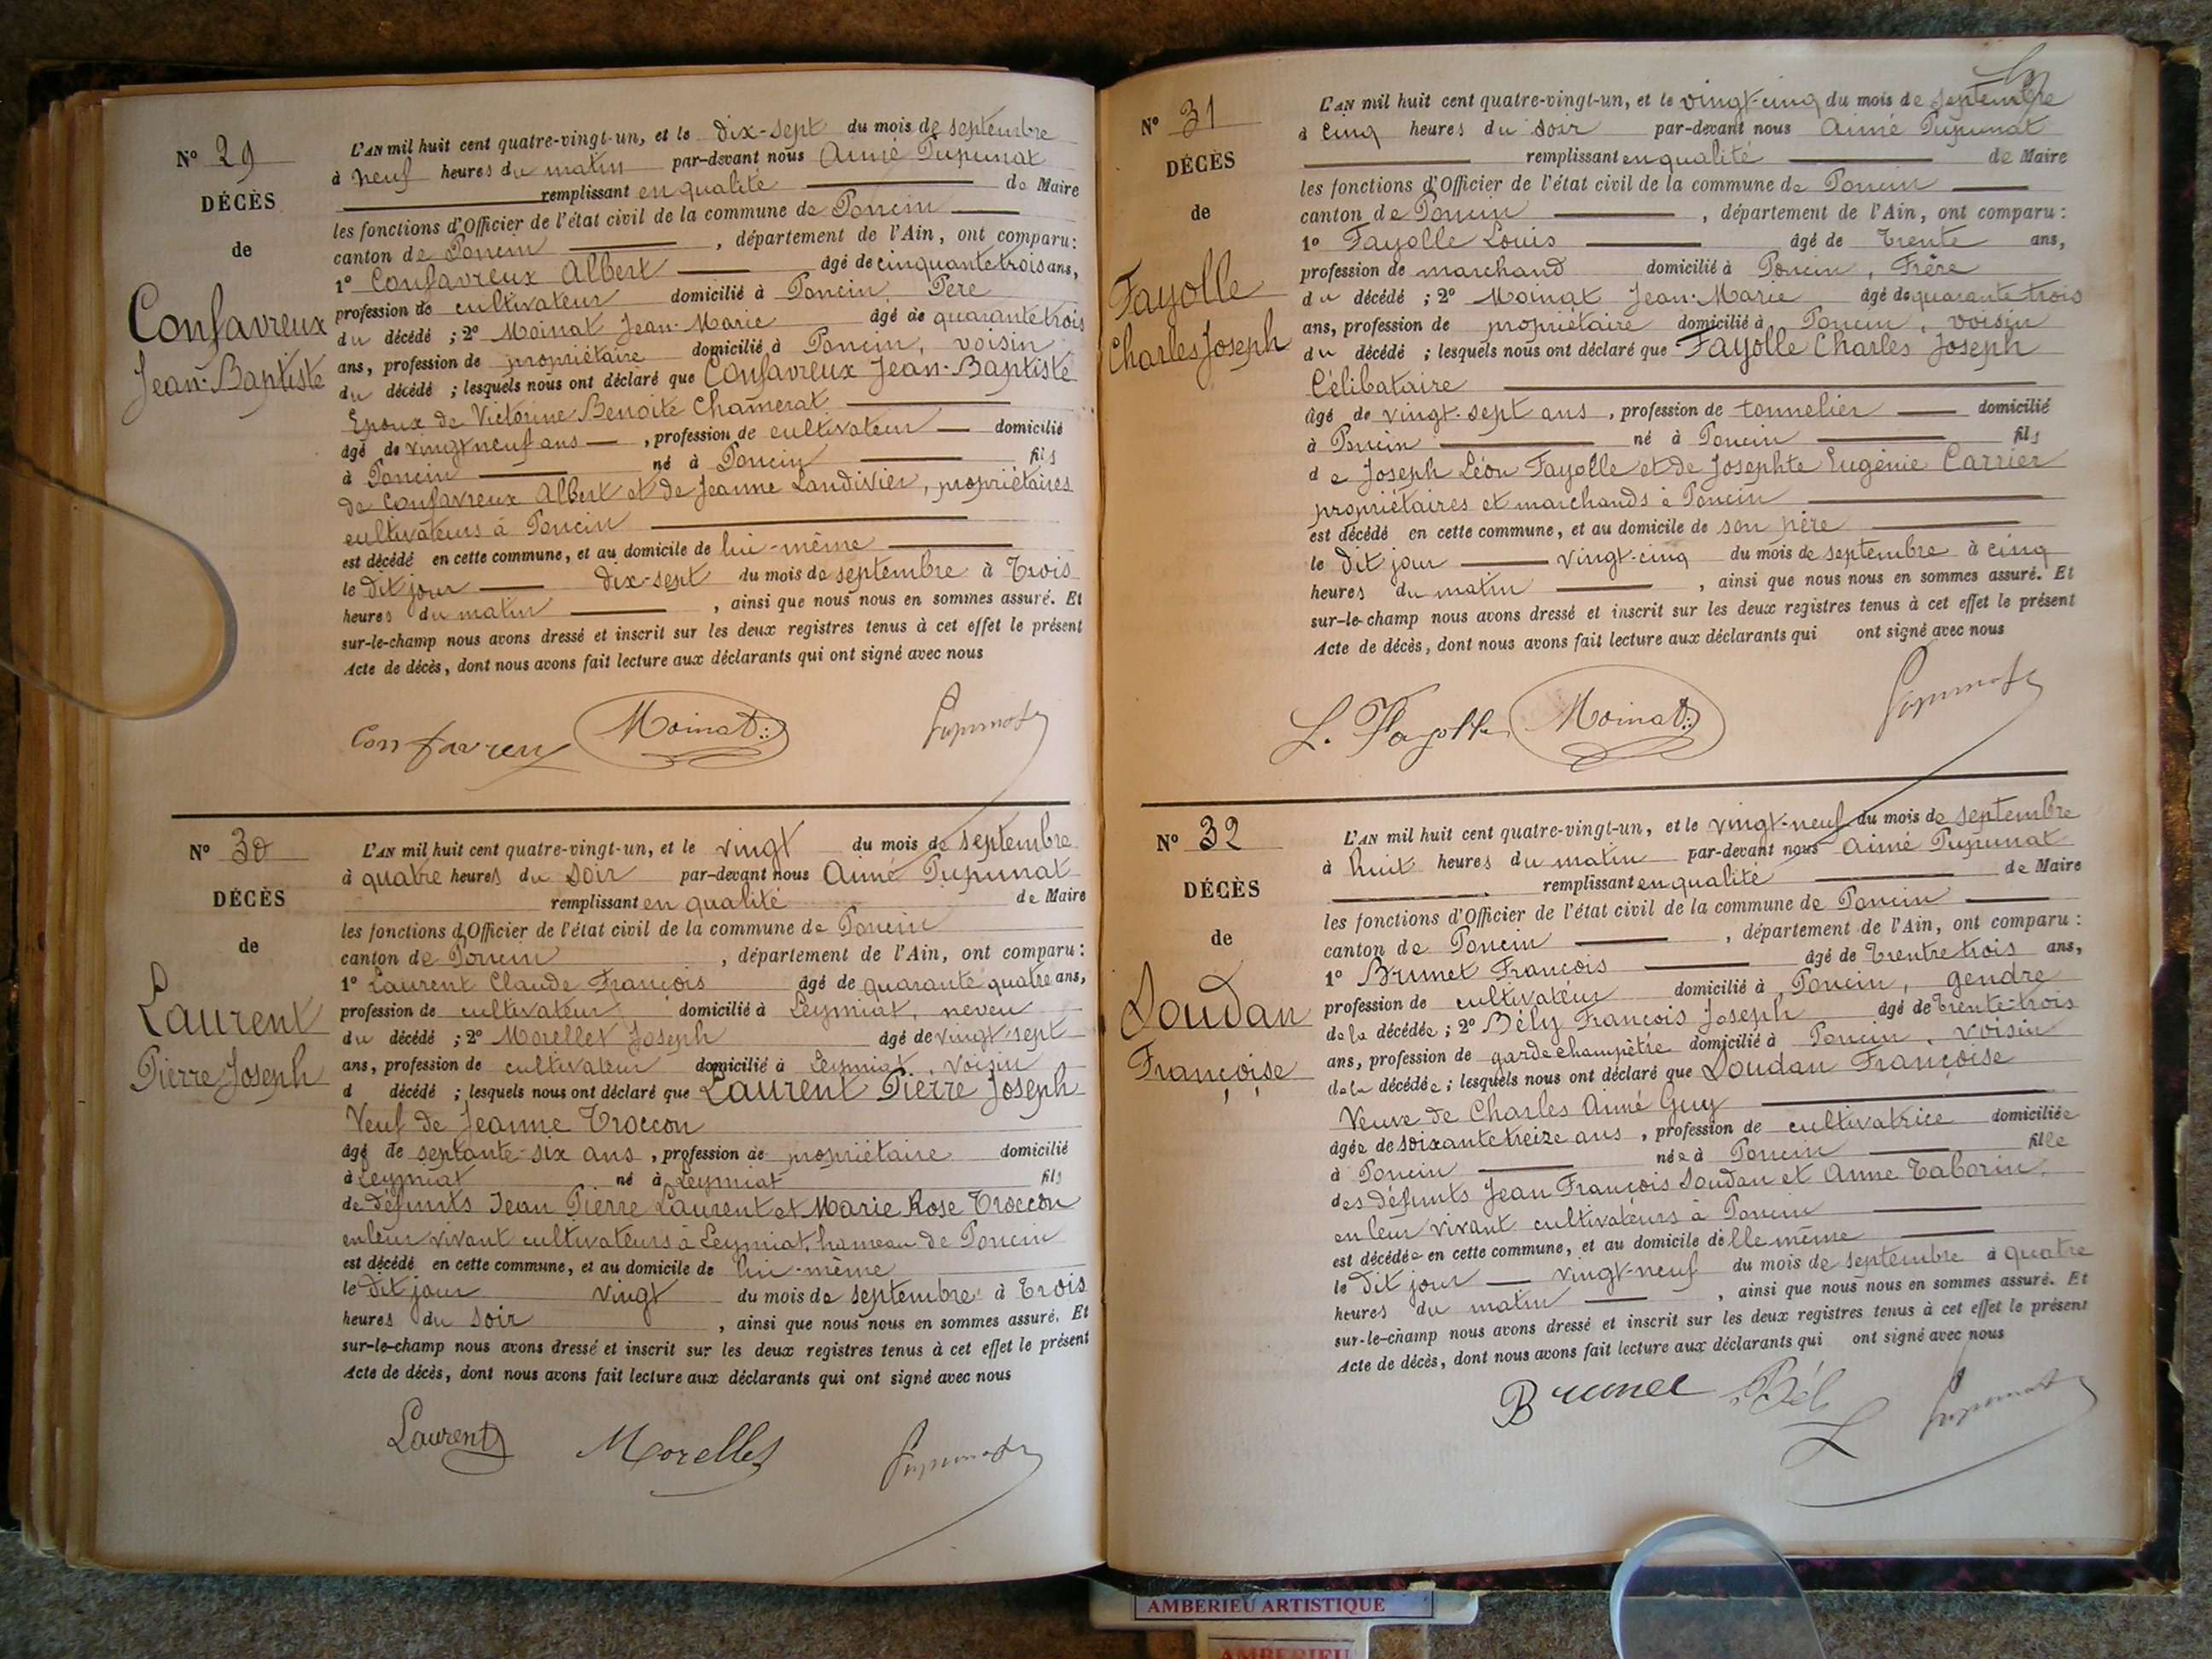 N° 29
DÉCÈS
de
Confavreux
Jean-Baptiste
L'AN mil huit cent quatre-vingt-un, et le dix-sept du mois de septembre
à neuf heures du matin par-devant nous Aimé Pupunat
remplissant en qualité de Maire
les fonctions d'Officier de l'état civil de la commune de Poncin
canton de Poncin, département de l'Ain, ont comparu:
1° Confavreux Albert âgé de cinquante trois ans,
profession de cultivateur domicilié à Poncin Père
du décédé ; 2° Moinat Jean-Marie âgé de quarante trois
ans, profession de propriétaire domicilié à Poncin, voisin
du décédé ; lesquels nous ont déclaré que Confavreux Jean-Baptiste
Epoux de Victorine Benoite Chamerat
âgé de vingt neuf ans, profession de cultivateur domicilié
à Poncin né à Poncin fils
de Confavreux Albert et de Jeanne Landivier, propriétaires
cultivateurs à Poncin
est décédé en cette commune, et au domicile de lui-même
le dit jour dix-sept du mois de septembre à Trois
heures du matin, ainsi que nous nous en sommes assuré. Et
sur-le-champ nous avons dressé et inscrit sur les deux registres tenus à cet effet le présent
Acte de décès, dont nous avons fait lecture aux déclarants qui ont signé avec nous
Confavreux Moinat Pupunat
N° 30
DÉCÈS
de
Laurent
Pierre Joseph
L'AN mil huit cent quatre-vingt-un, et le vingt du mois de septembre
à quatre heures du soir par-devant nous Aimé Pupunat
remplissant en qualité de Maire
les fonctions d'Officier de l'état civil de la commune de Poncin
canton de Poncin, département de l'Ain, ont comparu:
1° Laurent Claude François âgé de quarante quatre ans,
profession de cultivateur domicilié à Leymiat, neveu
du décédé ; 2° Morellet Joseph âgé de vingt sept
ans, profession de cultivateur domicilié à Leymiat, voisin
d décédé ; lesquels nous ont déclaré que Laurent Pierre Joseph
Veuf de Jeanne Troccon
âgé de septante-six ans, profession de propriétaire domicilié
à Leymiat né à Leymiat fils
de défunts Jean Pierre Laurent et Marie Rose Troccon
en leur vivant cultivateurs à Leymiat, hameau de Poncin
est décédé en cette commune, et au domicile de lui-même
le dit jour vingt du mois de septembre à Trois
heures du soir, ainsi que nous nous en sommes assuré. Et
sur-le-champ nous avons dressé et inscrit sur les deux registres tenus à cet effet le présent
Acte de décès, dont nous avons fait lecture aux déclarants qui ont signé avec nous
Laurent Morellet Pupunat
N° 31
DÉCÈS
de
Fayolle
Charles Joseph
L'AN mil huit cent quatre-vingt-un, et le vingt-cinq du mois de septembre
à cinq heures du soir par-devant nous Aimé Pupunat
remplissant en qualité de Maire
les fonctions d'Officier de l'état civil de la commune de Poncin
canton de Poncin, département de l'Ain, ont comparu:
1° Fayolle Louis âgé de Trente ans,
profession de marchand domicilié à Poncin, Frère
du décédé ; 2° Moinat Jean-Marie âgé de quarante trois
ans, profession de propriétaire domicilié à Poncin, voisin
du décédé ; lesquels nous ont déclaré que Fayolle Charles Joseph
Célibataire
âgé de vingt-sept ans, profession de tonnelier domicilié
à Poncin né à Poncin fils
de Joseph Léon Fayolle et de Josephte Eugénie Carrier
propriétaires et marchands à Poncin
est décédé en cette commune, et au domicile de son père
le dit jour vingt-cinq du mois de septembre à cinq
heures du matin, ainsi que nous nous en sommes assuré. Et
sur-le-champ nous avons dressé et inscrit sur les deux registres tenus à cet effet le présent
Acte de décès, dont nous avons fait lecture aux déclarants qui ont signé avec nous
L. Fayolle Moinat Pupunat
N° 32
DÉCÈS
de
Soudan
Françoise
L'AN mil huit cent quatre-vingt-un, et le vingt-neuf du mois de septembre
à huit heures du matin par-devant nous Aimé Pupunat
remplissant en qualité de Maire
les fonctions d'Officier de l'état civil de la commune de Poncin
canton de Poncin, département de l'Ain, ont comparu:
1° Brunet François âgé de trentre trois ans,
profession de cultivateur domicilié à Poncin, gendre
de la décédée ; 2° Bély François Joseph âgé de Trente-trois
ans, profession de garde champêtre domicilié à Poncin, voisin
de la décédée ; lesquels nous ont déclaré que Soudan Françoise
Veuve de Charles Aimé Guy
âgée de soixante treize ans, profession de cultivatrice domiciliée
à Poncin née à Poncin fille
des défunts Jean François Soudan et Anne Taborin,
en leur vivant cultivateurs à Poncin
est décédée en cette commune, et au domicile delle même
le dit jour vingt-neuf du mois de septembre à quatre
heures du matin, ainsi que nous nous en sommes assuré. Et
sur-le-champ nous avons dressé et inscrit sur les deux registres tenus à cet effet le présent
Acte de décès, dont nous avons fait lecture aux déclarants qui ont signé avec nous
Brunet Bély Pupunat
AMBERIEU ARTISTIQUE
AMBERIEU